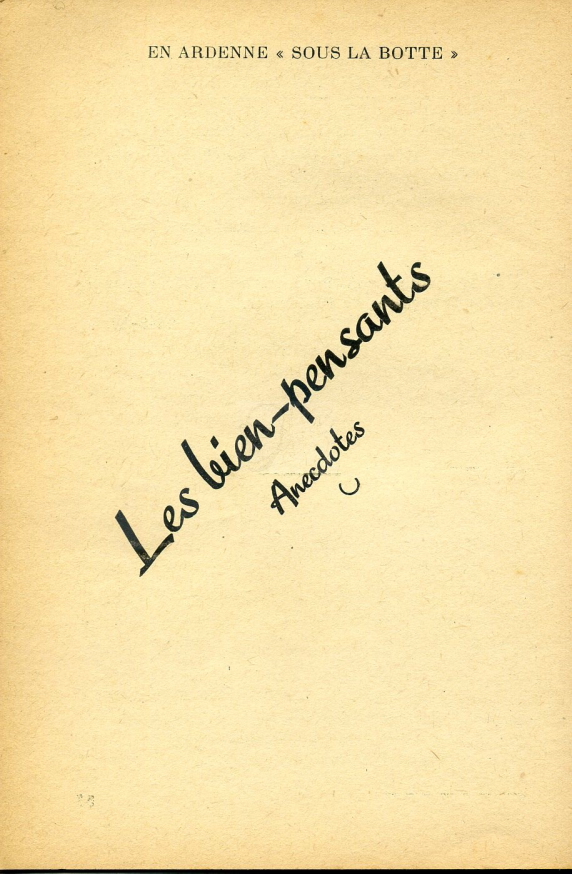 EN ARDENNE « SOUS LA BOTTE »
Les bien-pensants
Anecdotes